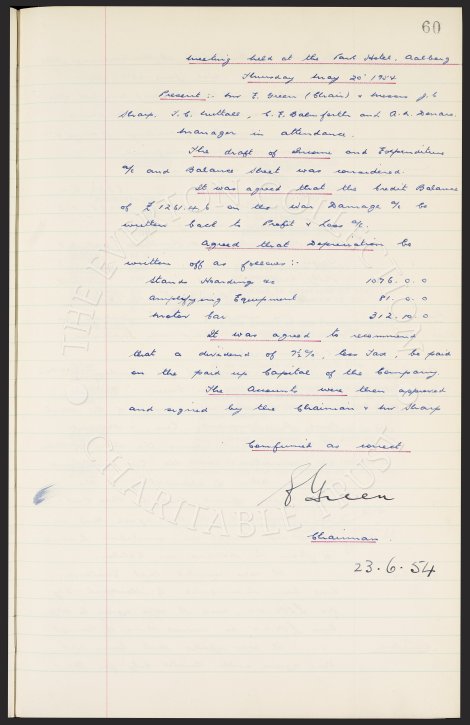 60
Meeting held at the Park Hotel, Aalborg
Thursday May 20' 1954
Present :- Mr F. Green (Chair) & Messrs J. C.
Sharp, T. C. Nuttall, C. F. Balmforth and A. A. Denars.
Manager in attendance.
The draft of Income and Expenditure
a/c and Balance Sheet was considered.
It was agreed that the Credit Balance
of £ 1261.4.6 on the War Damage a/c be
written back to Profit & Loss a/c.
Agreed that Depreciation be
written off as follows:-
Stands Hoardings &c 1076.0.0
Amplifying Equipment 81.0.0
Motor Car 312.10.0
It was agreed to recommend
that a dividend of 7½%, less Tax, be paid
on the paid up Capital of the Company.
The Accounts were then approved
and signed by the Chairman & Mr Sharp
Confirmed as correct.
F Green
Chairman.
23.6.54
THE EVERTON COLLECTION
CHARITABLE TRUST